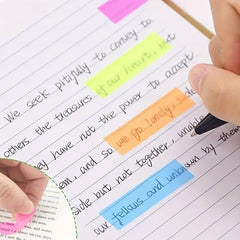 We seek pitifully to convey to
others the treasures of our heart, but
they have not the power to accept
them, and so we go lonely, side
side but not together, unable
our fellows and unknown by them